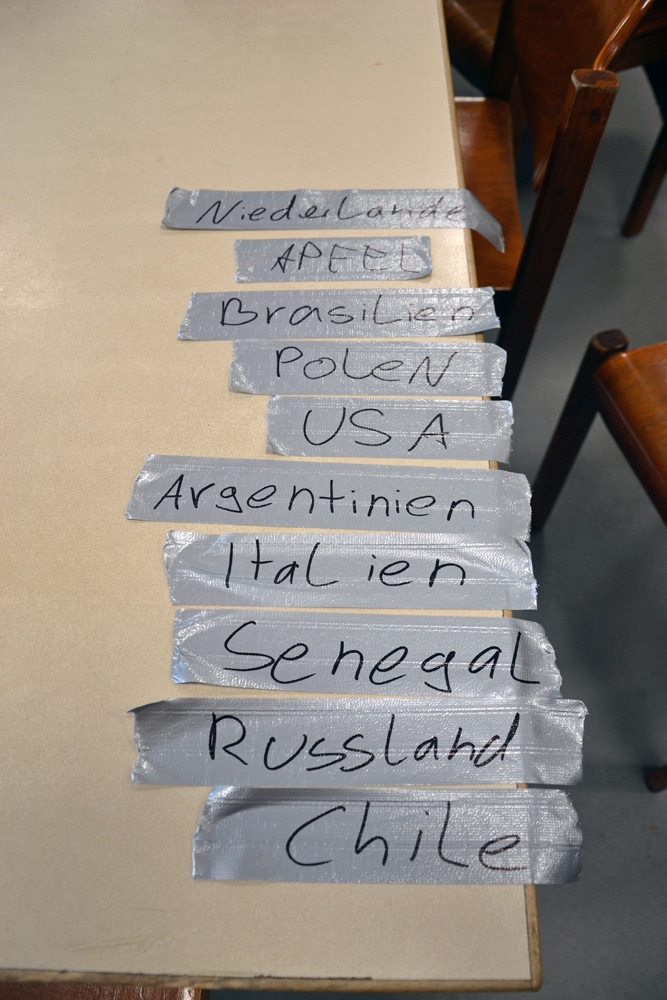 Niederlande
APFEL
Brasilien
POLeN
USA
Argentinien
Italien
Senegal
Russland
Chile